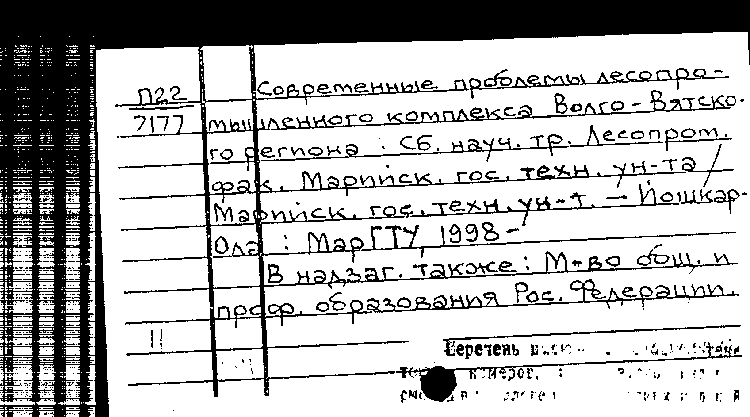 П22 Современные проблемы лесопро-
7177 мышленного комплекса Волго-Вятско-
го региона : Сб. науч. тр. Лесопром.
фак. Марийск. гос. техн. ун-та /
Марийск. гос. техн. ун-т. — Йошкар-
Ола : МарГТУ, 1998 -
В надзаг. также : М-во общ. и
проф. образования Рос. Федерации.
Перечень
номеров,